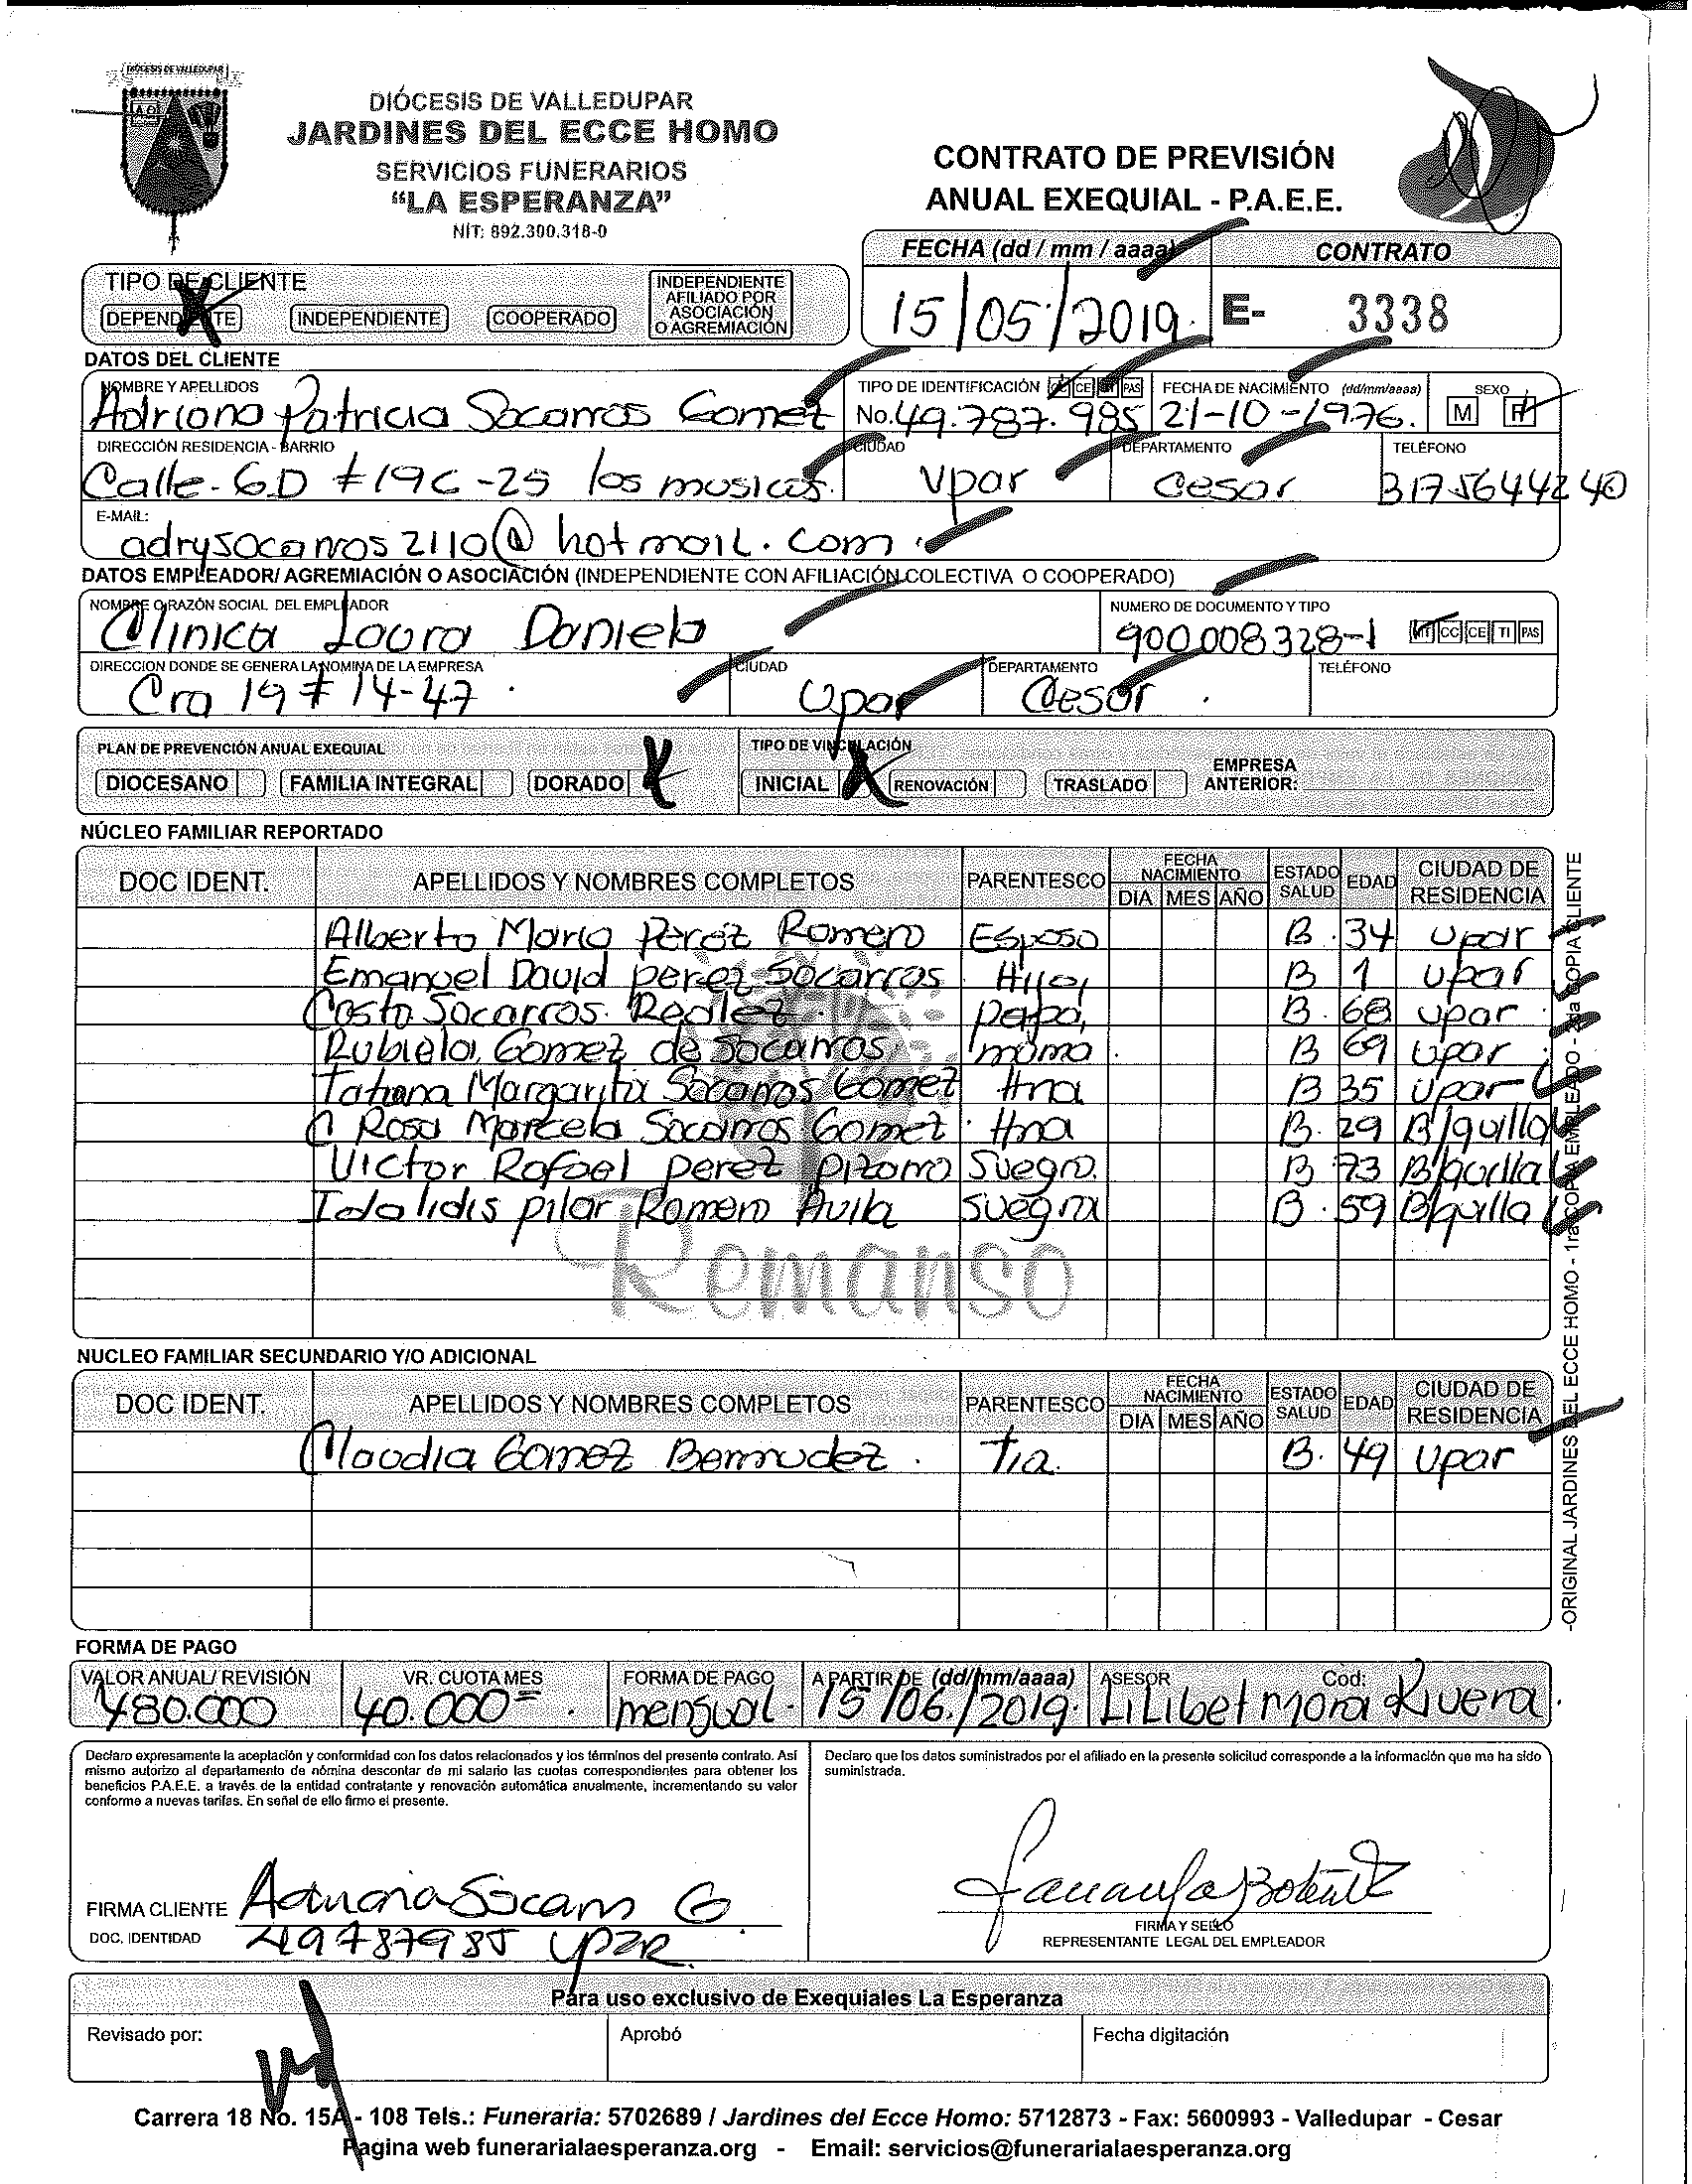 DIÓCESIS DE VALLEDUPAR
DIÓCESIS DE VALLEDUPAR
JARDINES DEL ECCE HOMO
SERVICIOS FUNERARIOS
“LA ESPERANZA”
NIT: 892.300.318-0
CONTRATO DE PREVISIÓN
ANUAL EXEQUIAL - P.A.E.E.
FECHA (dd / mm / aaaa) CONTRATO
15/05/2019. E- 3338
TIPO DE CLIENTE
DEPENDIENTE INDEPENDIENTE COOPERADO INDEPENDIENTE AFILIADO POR ASOCIACIÓN O AGREMIACIÓN
DATOS DEL CLIENTE
NOMBRE Y APELLIDOS TIPO DE IDENTIFICACIÓN CC CE TI PAS FECHA DE NACIMIENTO (dd/mm/aaaa) SEXO
Adriana Patricia Socarros Gomez No. 49.787.985 21-10-1976. M F
DIRECCIÓN RESIDENCIA - BARRIO CIUDAD DEPARTAMENTO TELÉFONO
Calle-6D #19C-25 los musicos. Vpar Cesar 3175644240
E-MAIL:
adrysocarros2110@hotmail.com.
DATOS EMPLEADOR/ AGREMIACIÓN O ASOCIACIÓN (INDEPENDIENTE CON AFILIACIÓN COLECTIVA O COOPERADO)
NOMBRE O RAZÓN SOCIAL DEL EMPLEADOR NUMERO DE DOCUMENTO Y TIPO
Clinica Laura Daniela 900.008328-1 NIT CC CE TI PAS
DIRECCION DONDE SE GENERA LA NOMINA DE LA EMPRESA CIUDAD DEPARTAMENTO TELÉFONO
Cra 19 # 14-47 Upar Cesar.
PLAN DE PREVENCIÓN ANUAL EXEQUIAL TIPO DE VINCULACIÓN
DIOCESANO FAMILIA INTEGRAL DORADO X INICIAL X RENOVACIÓN TRASLADO EMPRESA ANTERIOR:
NÚCLEO FAMILIAR REPORTADO
DOC IDENT. APELLIDOS Y NOMBRES COMPLETOS PARENTESCO FECHA NACIMIENTO DIA MES AÑO ESTADO SALUD EDAD CIUDAD DE RESIDENCIA
Alberto Mario Perez Romero Esposo B. 34 Upar
Emanuel David perez Socarros Hijo, B 1 upar
Casto Socarros. Reales. papa, B. 68 upar
Rubiela. Gomez de Socarros. mama B 69 upar
Tatiana Margarita Socarros Gomez Hna B 35 Upar
Rosa Marcela Socarros Gomez Hna B. 29 B/quilla
Victor Rafael perez pizarro Suegro. B 73 B/quilla
Idalidis pilar Romero Avila Suegra B. 59 B/quilla
Remanso
NUCLEO FAMILIAR SECUNDARIO Y/O ADICIONAL
DOC IDENT. APELLIDOS Y NOMBRES COMPLETOS PARENTESCO FECHA NACIMIENTO DIA MES AÑO ESTADO SALUD EDAD CIUDAD DE RESIDENCIA
Claudia Gomez Bermudez. Tia. B. 49 Upar
-ORIGINAL JARDINES DEL ECCE HOMO - 1ra COPIA EMPLEADO - 2da COPIA CLIENTE
FORMA DE PAGO
VALOR ANUAL/ REVISIÓN VR. CUOTA MES FORMA DE PAGO A PARTIR DE (dd/mm/aaaa) ASESOR Cod:
480.000 40.000= mensual- 15/06/2019. Lilibet Mora Rivera.
Declaro expresamente la aceptación y conformidad con los datos relacionados y los términos del presente contrato. Así
mismo autorizo al departamento de nómina descontar de mi salario las cuotas correspondientes para obtener los
beneficios P.A.E.E. a través de la entidad contratante y renovación automática anualmente, incrementando su valor
conforme a nuevas tarifas. En señal de ello firmo el presente.
Declaro que los datos suministrados por el afiliado en la presente solicitud corresponde a la información que me ha sido
suministrada.
FIRMA CLIENTE Adriana Socarros G
DOC. IDENTIDAD 49787985 UPAR
FIRMA Y SELLO
REPRESENTANTE LEGAL DEL EMPLEADOR
Para uso exclusivo de Exequiales La Esperanza
Revisado por: Aprobó Fecha digitación
Carrera 18 No. 15A - 108 Tels.: Funeraria: 5702689 / Jardines del Ecce Homo: 5712873 - Fax: 5600993 - Valledupar - Cesar
Pagina web funerarialaesperanza.org - Email: servicios@funerarialaesperanza.org